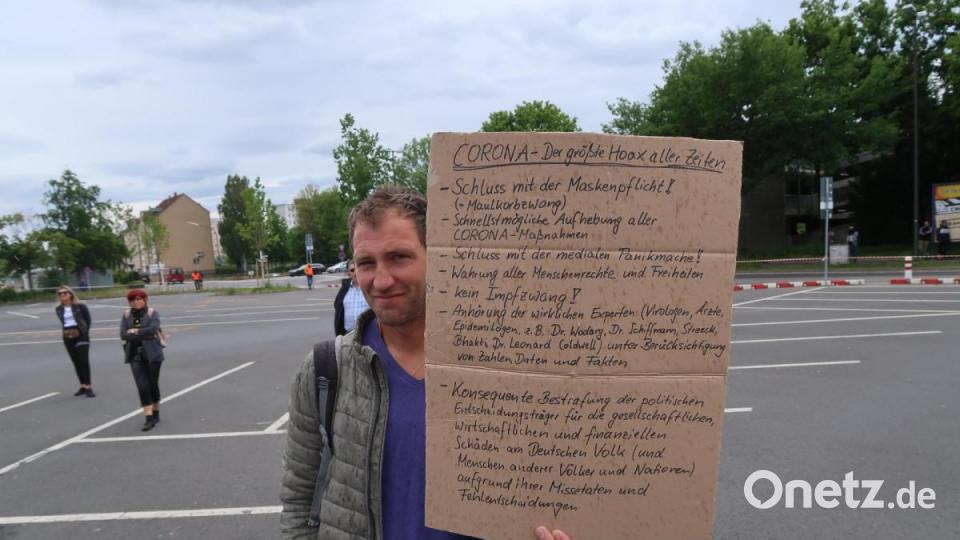 CORONA - Der größte Hoax aller Zeiten
- Schluss mit der Maskenpflicht!
(= Maulkorbzwang)
- Schnellstmögliche Aufhebung aller
CORONA-Maßnahmen
- Schluss mit der medialen Panikmache!
- Wahrung aller Menschenrechte und Freiheiten
- kein Impfzwang!
- Anhörung der wirklichen Experten (Virologen, Ärzte,
Epidemilogen, z.B. Dr. Wodarg, Dr. Schiffmann, Streeck,
Bhakti, Dr. Leonard Coldwell) unter Berücksichtigung
von Zahlen, Daten und Fakten
- Konsequente Bestrafung der politischen
Entscheidungsträger für die gesellschaftlichen,
wirtschaftlichen und finanziellen
Schäden am Deutschen Volk (und
Menschen anderer Völker und Nationen)
aufgrund ihrer Missetaten und
Fehlentscheidungen
Onetz.de